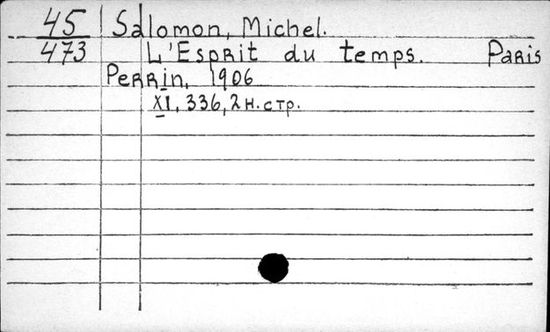 45 Salomon, Michel.
473 L'Esprit du temps. Paris
Perrin, 1906
XI, 336, 2 н. стр.